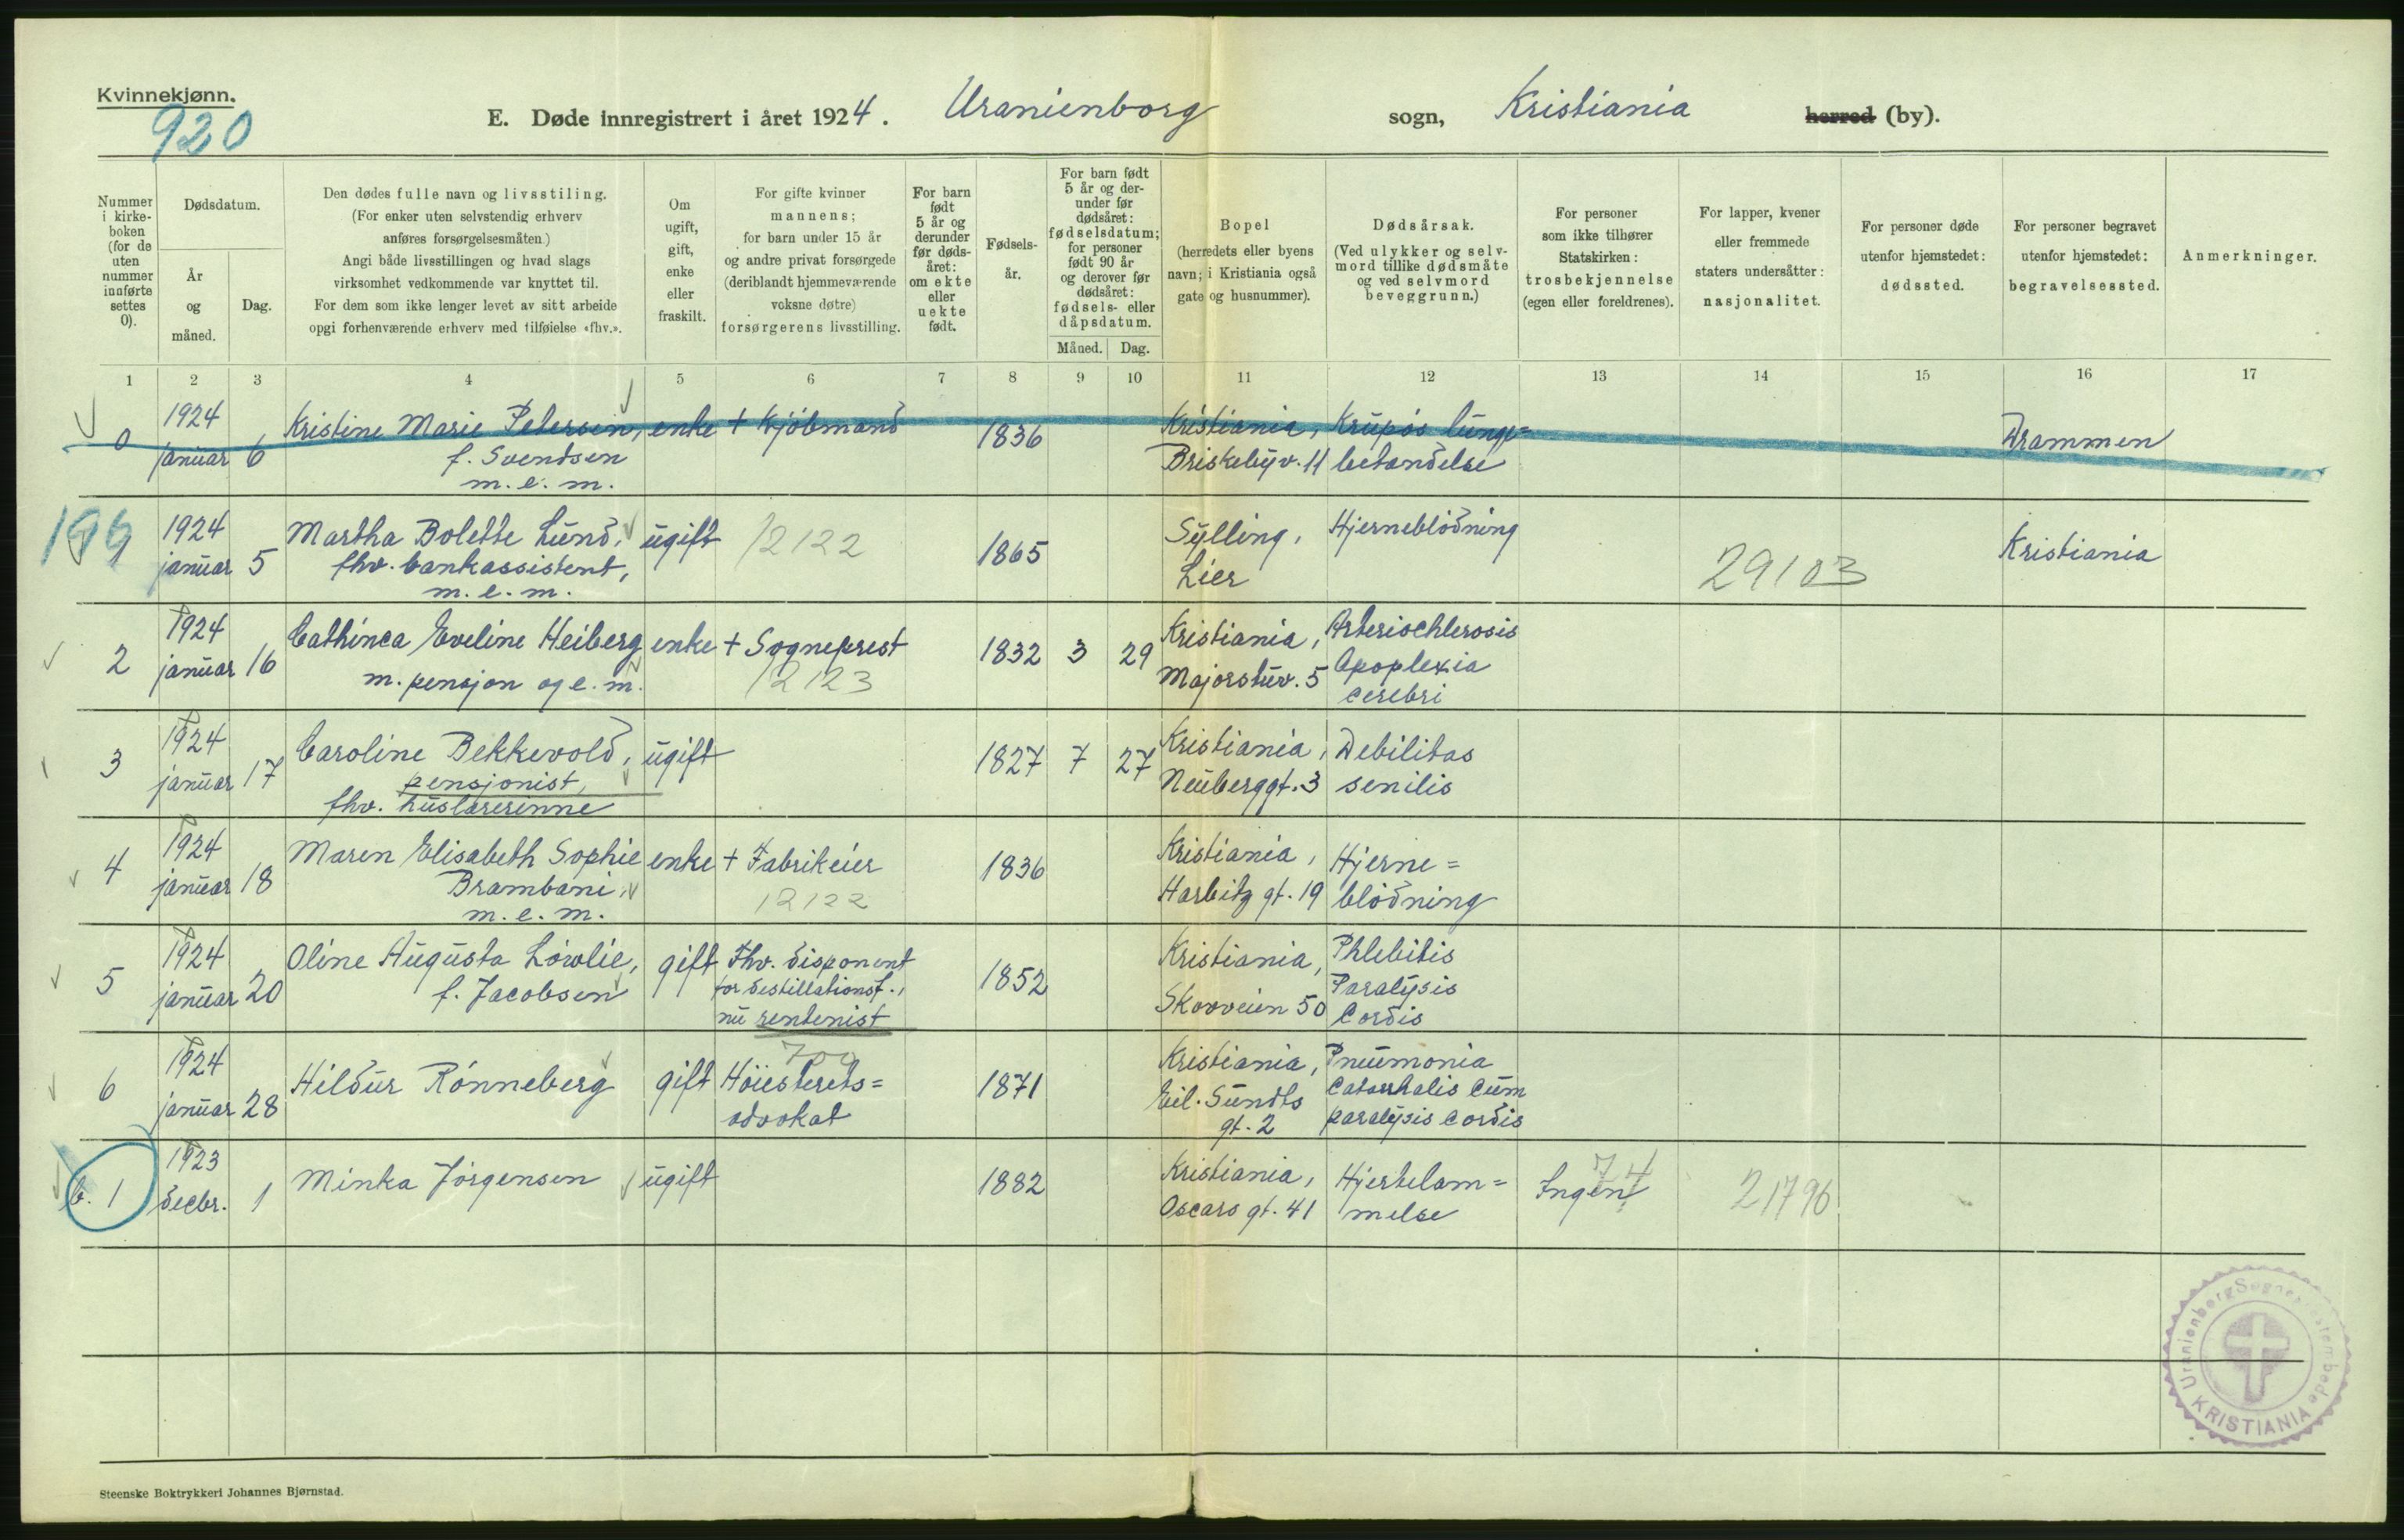 Kvinnekjønn.
920
E. Døde innregistrert i året 1924. Uranienborg sogn, Kristiania herred (by).
Nummer i kirke-boken (for de uten nummer innførte settes 0).
Dødsdatum.
År og måned.
Dag.
Den dødes fulle navn og livsstiling.
(For enker uten selvstendig erhverv
anføres forsørgelsesmåten.)
Angi både livsstillingen og hvad slags
virksomhet vedkommende var knyttet til.
For dem som ikke lenger levet av sitt arbeide
opgi forhenværende erhverv med tilføielse «fhv.».
Om
ugift,
gift,
enke
eller
fraskilt.
For gifte kvinner
mannens;
for barn under 15 år
og andre privat forsørgede
(deriblandt hjemmeværende
voksne døtre)
forsørgerens livsstilling.
For barn
født
5 år og
derunder
før døds-
året:
om ekte
eller
uekte
født.
Fødsels-
år.
For barn født
5 år og der-
under før
dødsåret:
fødselsdatum;
for personer
født 90 år
og derover før
dødsåret:
fødsels- eller
dåpsdatum.
Måned. Dag.
Bopel
(herredets eller byens
navn; i Kristiania også
gate og husnummer).
Dødsårsak.
(Ved ulykker og selv-
mord tillike dødsmåte
og ved selvmord
beveggrunn.)
For personer
som ikke tilhører
Statskirken:
trosbekjennelse
(egen eller foreldrenes).
For lapper, kvener
eller fremmede
staters undersåtter:
nasjonalitet.
For personer døde
utenfor hjemstedet:
dødssted.
For personer begravet
utenfor hjemstedet:
begravelsessted.
Anmerkninger.
1 2 3 4 5 6 7 8 9 10 11 12 13 14 15 16 17
0 1924 januar 6
Kristine Marie Petersen,
f. Svendsen
m. e. m.
enke + Kjöbmand 1836
Kristiania,
Briskebyv. 11
Krupös lunge=
betandelse
Drammen
1924 januar 5
Martha Bolette Lund,
fhv. bankassistent,
m. e. m.
ugift 12122 1865
Sylling,
Lier
Hjerneblödning
29103
Kristiania
2 1924 januar 16
Cathinca Eveline Heiberg
m. pensjon og e. m.
enke + Sogneprest
12123
1832 3 29
Kristiania,
Majorstuv. 5
Arteriochlerosis
Apoplexia
cerebri
3 1924 januar 17
Caroline Bekkevold,
pensjonist,
fhv. huslærerinne
ugift 1827 7 27
Kristiania,
Neuberggt. 3
Debilitas
senilis
4 1924 januar 18
Maren Elisabeth Sophie
Brambani,
m. e. m.
enke + Fabrikeier
12122
1836
Kristiania,
Harbitz gt. 19
Hjerne=
blödning
5 1924 januar 20
Oline Augusta Lövlie,
f. Jacobsen
gift
Fhv. disponent
for destillationsf.,
nu rentenist
1852
Kristiania,
Skovveien 50
Phlebitis
Paralysis
Cordis
6 1924 januar 28
Hildur Rönneberg
gift
700
Höiesterets=
advokat
1871
Kristiania,
Eil. Sundts
gt. 2
Pneumonia
Catarrhalis cum
paralysis cordis
b. 1 1923 decbr. 1
Minka Jörgensen
ugift 1882
Kristiania,
Oscars gt. 41
Hjertelam=
melse
74
Ingen
21796
Uranienborg Sogneprestembede
KRISTIANIA
Steenske Boktrykkeri Johannes Bjørnstad.